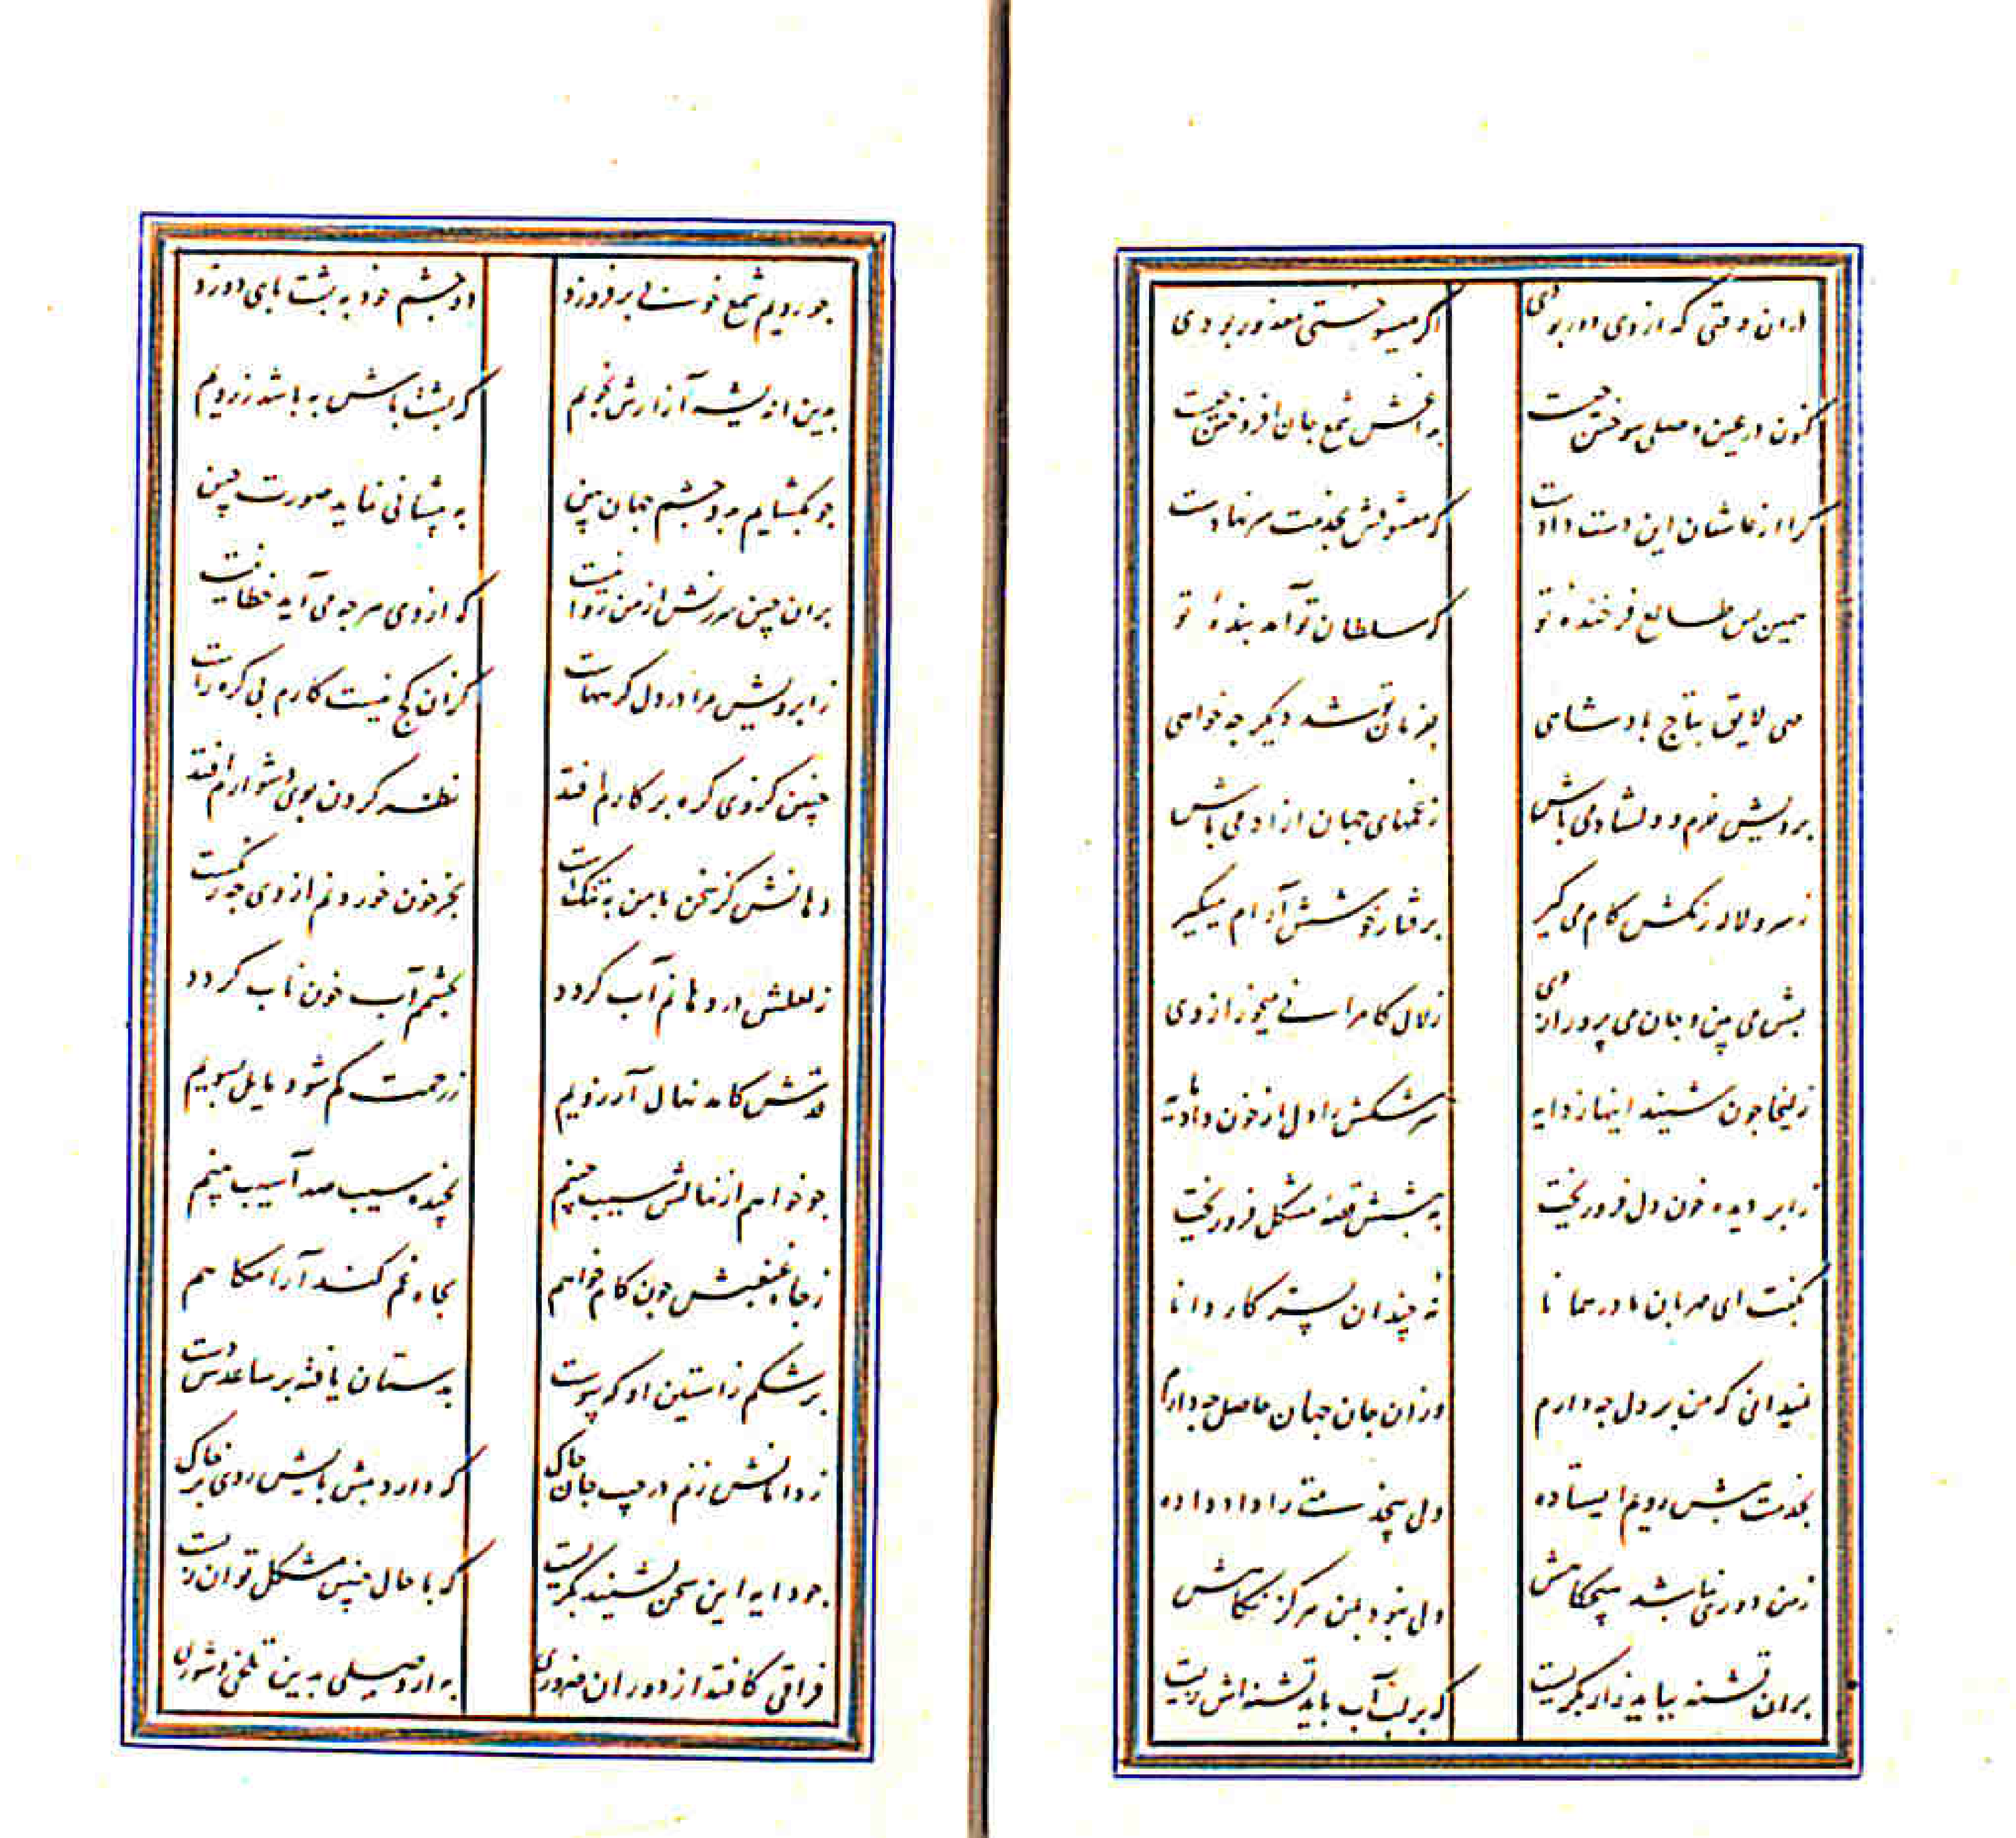 ازان وقتی که از وی دور بودی
اگر میسوختی معذور بودی
کنون در عین وصلی سوختن چیست
به داغش شمع جان افروختن چیست
کرا از عاشقان این دست دادست
که معشوقش بخدمت سر نهادست
همین بس طالع فرخنده تو
که سلطان تو آمد بنده تو
مهی لایق بتاج بادشاهی
بفرمان تو شد دیگر چه خواهی
برویش خرم و دلشاد می باش
ز غمهای جهان ازاد می باش
ز سرو لاله رنگش کام می گیر
برفتار خوشش آرام میگیر
لبش می بین و جان می پرور از وی
زلال کامرانی میخور از وی
زلیخا چون شنید اینها ز دایه
سرشکش را دل از خون داد مایه
ز ابر دیده خون دل فرو ریخت
به پیشش قصه مشکل فرو ریخت
بگفت ای مهربان مادر همانا
نه چندان بسّر کار دانا
نمیدانی که من بر دل چه دارم
وزان جان جهان حاصل چه دارم
بخدمت پیش رویم ایستاده
ولی بیخدمتی را داد داده
زمن دوری نباشد هیچگاهش
ولی نبود بمن هرگز نگاهش
بران تشنه بباید زار بگریست
که بر لب آب باید تشنه اش زیست
چو رویم شمع خوبی بر فروزد
دو چشم خود به پشت پای دوزد
بدین اندیشه آزارش نجویم
که پشت پاش به باشد ز رویم
چو بگشایم بدو چشم جهان بین
به پیشانی نماید صورت چین
بران چین سرزنش از من روا نیست
که از وی هر چه می آید خطا نیست
ز ابرویش مرا در دل گرههاست
کزان کج نیست کارم بی گره راست
چنین کز وی گره بر کارم افتد
نظر کردن بوی دشوارم افتد
دهانش کز سخن با من به تنگ است
بجز خون خوردنم از وی چه رنگست
ز لعلش در دهانم آب گردد
بچشم آب خون ناب گردد
قدش کامد نهال آرزویم
ز رحمت کم شود مایل بسویم
چو خواهم از نهالش سیب چینم
نچیده سیب صد آسیب بینم
ز چاه غبغبش چون کام خواهم
بچاه غم کند آرامگاهم
برشکم ز آستین او که پیوست
بدستان یافته بر ساعدش دست
ز دامانش زنم در جیب جان چاک
که دارد پیش پایش روی بر خاک
چو دایه این سخن بشنید بگریست
که با حال چنین مشکل توان زیست
فراقی کافتد از دوران ضروری
به از وصلی بدین تلخی و شوری